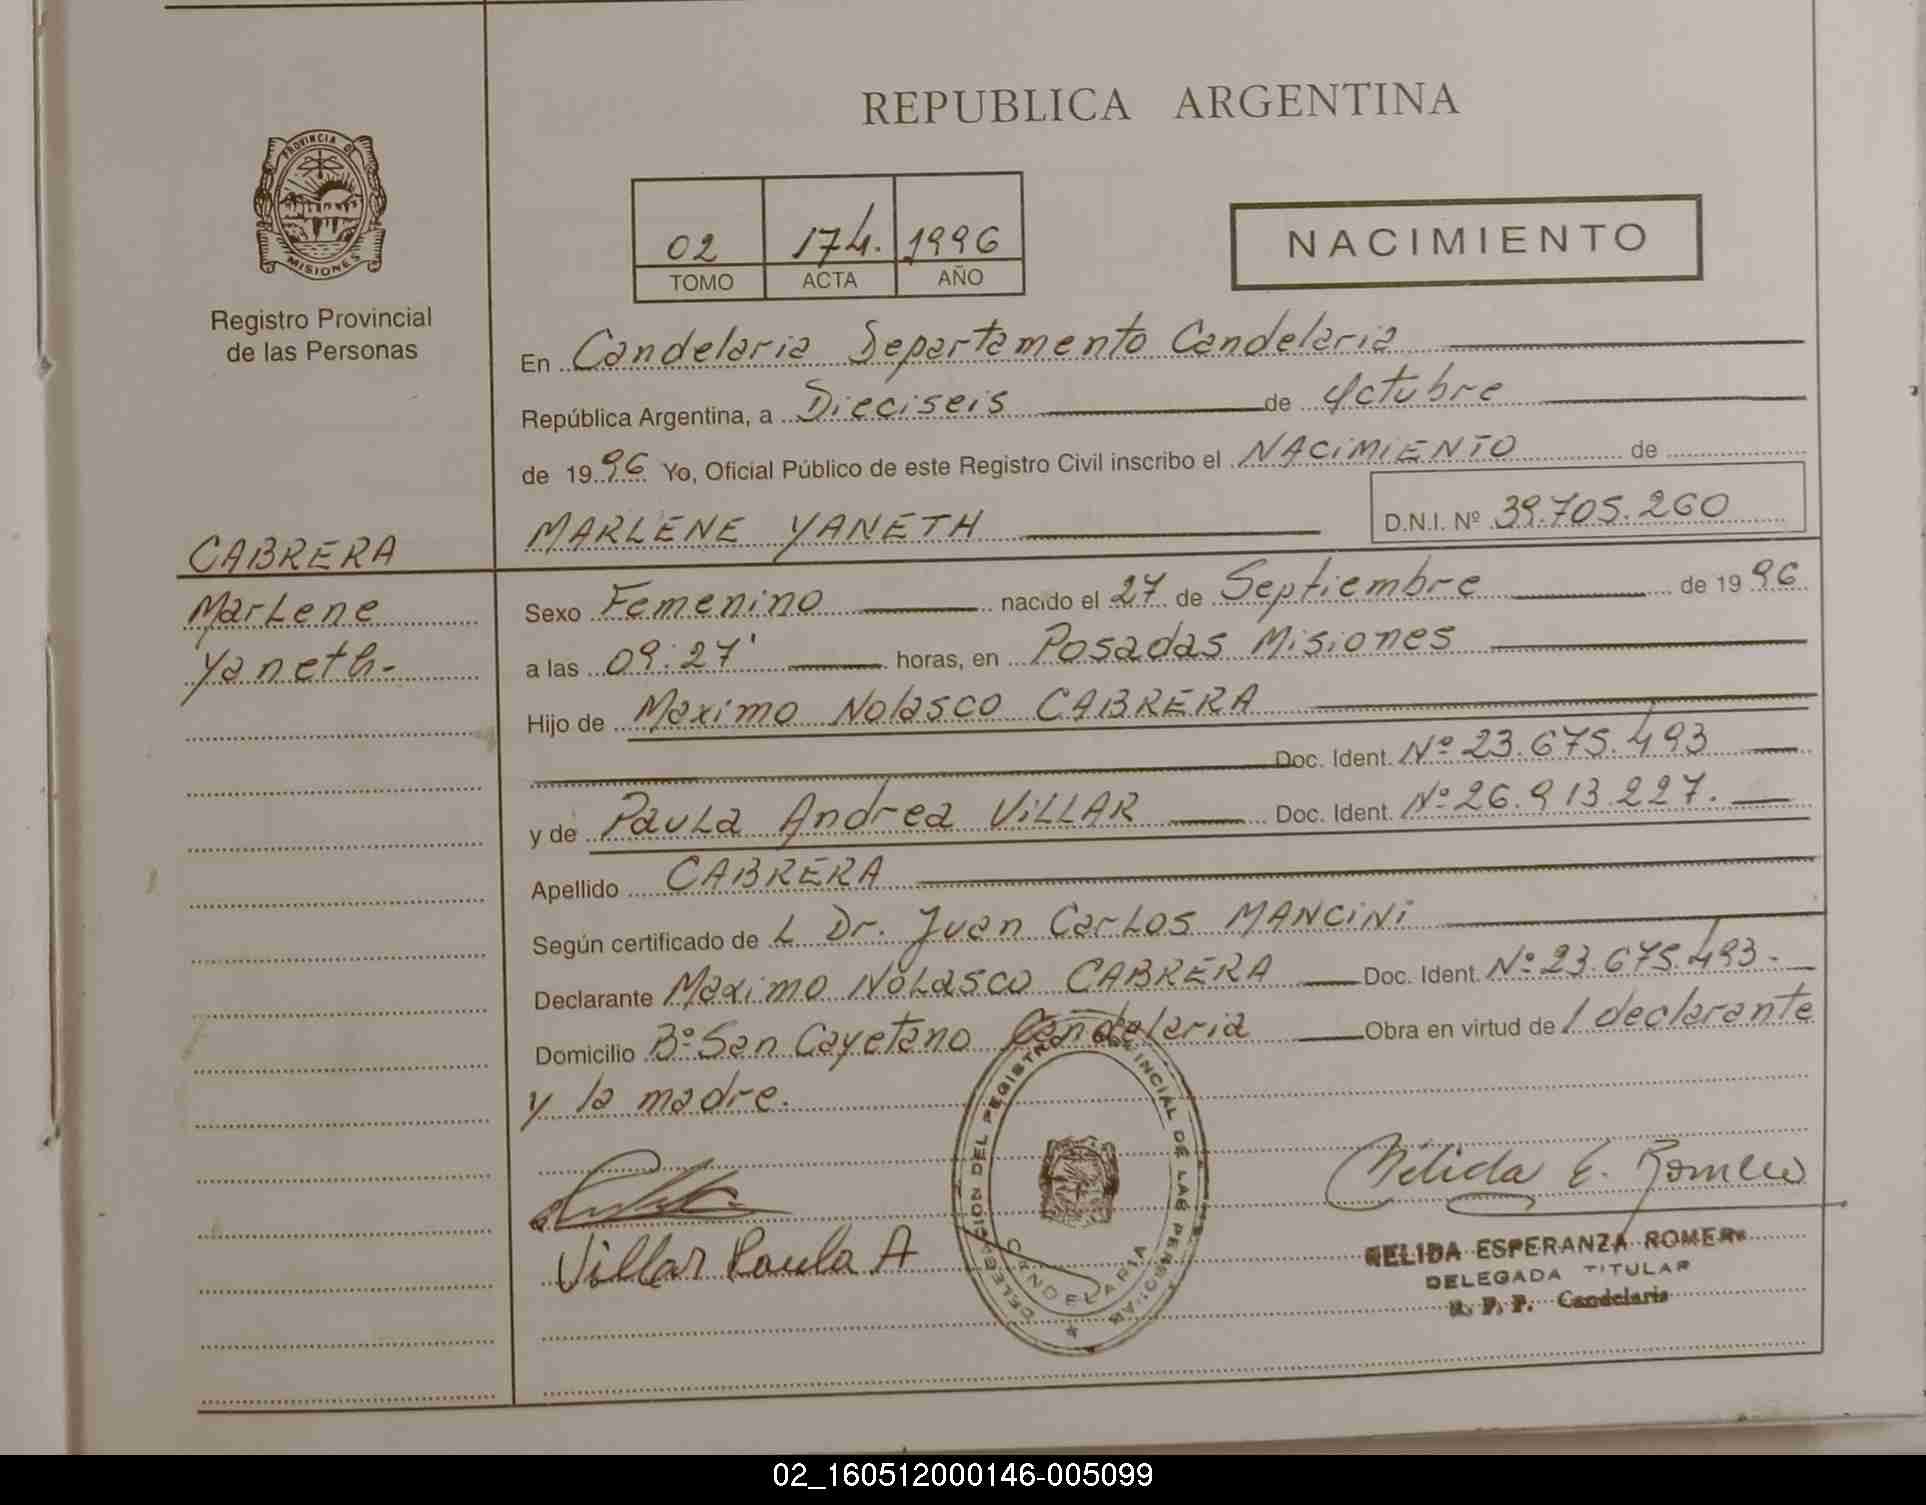 REPUBLICA ARGENTINA
PROVINCIA DE
MISIONES
Registro Provincial
de las Personas
02 174. 1996
TOMO ACTA AÑO
NACIMIENTO
En Candelaria Departamento Candelaria
República Argentina, a Dieciseis de Octubre
de 1996 Yo, Oficial Público de este Registro Civil inscribo el NACIMIENTO de
MARLENE YANETH D.N.I. Nº 39.705.260
CABRERA
Marlene
Yaneth-
Sexo Femenino nacido el 27 de Septiembre de 1996
a las 09:27' horas, en Posadas Misiones
Hijo de Maximo Nolasco CABRERA
Doc. Ident. Nº 23.675.493
y de Paula Andrea VILLAR Doc. Ident. Nº 26.913.227.
Apellido CABRERA
Según certificado de L Dr. Juan Carlos MANCINI
Declarante Maximo Nolasco CABRERA Doc. Ident. Nº 23.675.493-
Domicilio Bº San Cayetano Candelaria Obra en virtud de l declarante
y la madre.
Villar Paula A
DELEGACION DEL REGISTRO PROVINCIAL DE LAS PERSONAS
CANDELARIA
Nélida E. Romero
NELIDA ESPERANZA ROMERO
DELEGADA TITULAR
R. P. P. Candelaria
02_160512000146-005099